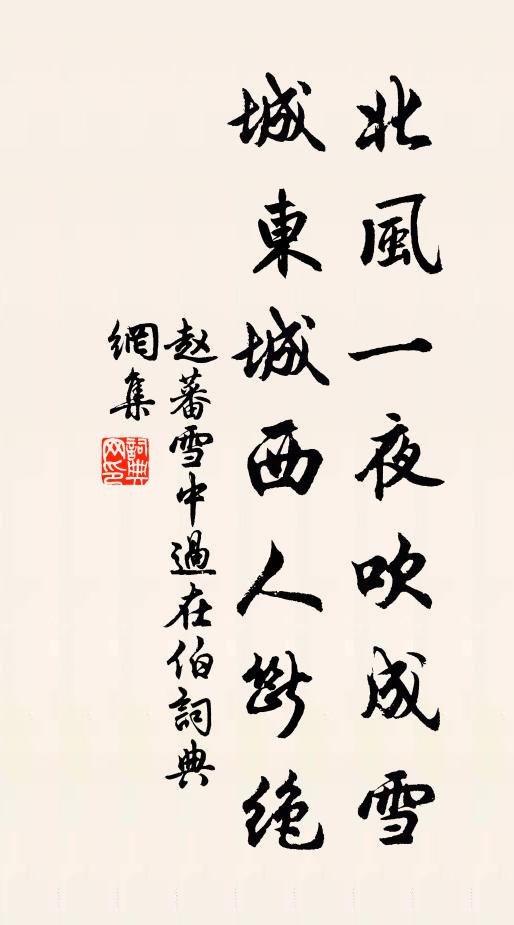 北風一夜吹成雪
城東城西人斷絕
赵蕃雪中過在伯詞典
網集
詞典
网印